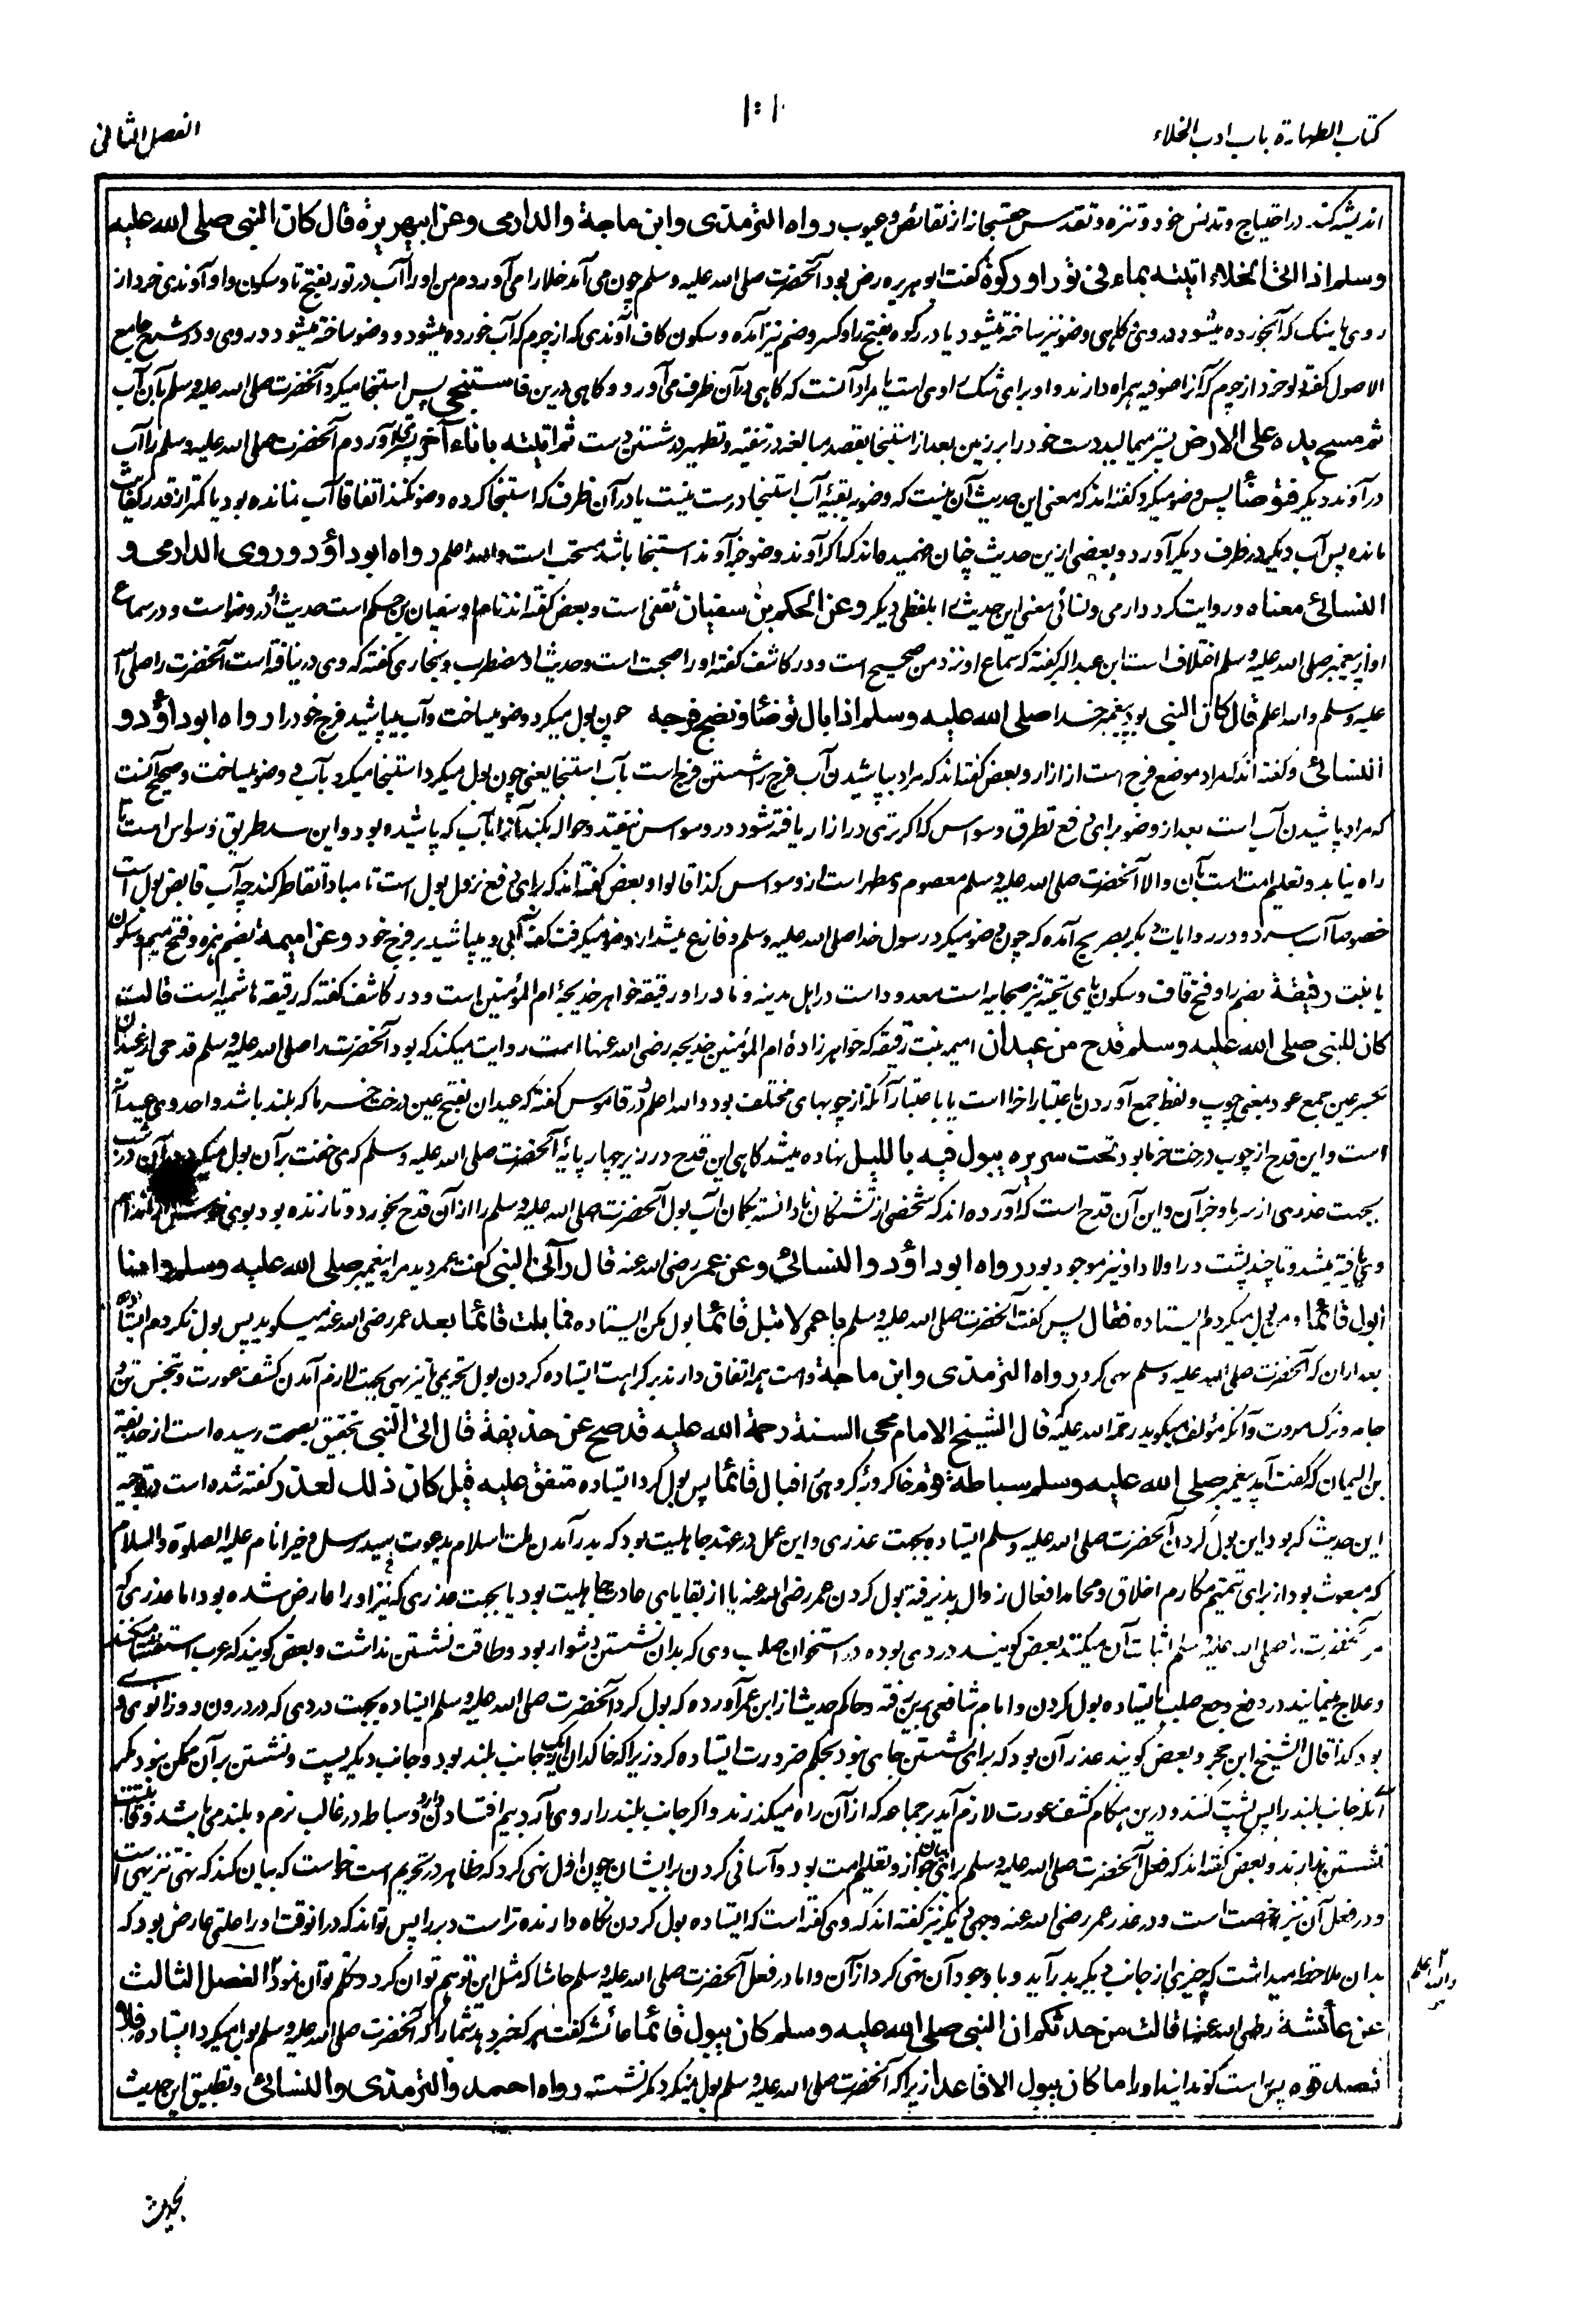 كتاب الطهارة باب ادب الخلاء
الفصل الثانى
اندیشه کند در احتیاج و تدنس خود و تنزه و تقدس از نقائص و عیوب رواه الترمذى وابن ماجة والدارمى وعن ابيهريرة قال كان النبى صلى الله عليه
وسلم اذا اتى الخلاء اتيته بماء فى تور او ركوة گفت ابوهریره رض بود آنحضرت صلی الله علیه وسلم چون می آمد خلا را می آوردم من او را آب در تور بفتح تا و سکون واو آوندی خرد از
روی یا سنگ که آبخورده میشود در وی و گاهی وضو نیز ساخته میشود یا در رکوه بفتح را و کسر و ضم نیز آمده و سکون کاف آوندی که از چرم که آب خورده میشود و وضو ساخته میشود در وی و در شرح جامع
الاصول گفته دلو خرد از چرم که آنرا صوفیه همراه دارند و او برای شک راوی است یا مراد آنست که گاهی در آن ظرف می آورد و گاهی درین فاستنجى پس استنجا میکرد آنحضرت صلی الله علیه وسلم بآن آب
ثم مسح يده على الارض پستر میمالید دست خود را بر زمین بعد از استنجا بقصد مبالغه در تنقیه و تطهیر در شستن دست ثم اتيته باناء آخر پستر آوردم آنحضرت صلی الله علیه وسلم را آب
در آوند دیگر فتوضأ پس وضو میکرد گفته اند که معنی این حدیث آن نیست که وضو به بقیهٔ آب استنجا درست نیست یا در آن ظرف که استنجا کرده وضو نکنند اتفاقا آب نمانده بود یا کمتر از قدر کفایت
مانده پس آب دیگر در ظرف دیگر آورد و بعضی ازین حدیث چنان فهمیده اند که اگر آوند وضو جز آوند استنجا باشد مستحب است والله اعلم رواه ابوداؤد وروى الدارمى و
النسائى معناه و روایت کرد دارمی و نسائی معنی این حدیث را بلفظی دیگر وعن الحكم بن سفيان ثقفی است و بعض گفته اند نام او سفیان بن حکم است حدیث او در وضو است و در سماع
او از پیغمبر صلی الله علیه وسلم اختلاف است ابن عبد البر گفته که سماع او نزد من صحیح است و در کاشف گفته او را صحبت است و حدیث او مضطرب و بخاری گفته که وی در نیافته است آنحضرت را صلی الله
علیه وسلم والله اعلم قال كان النبى بود پیغمبر خدا صلى الله عليه وسلم اذا بال توضأ ونضح فرجه چون بول میکرد وضو میساخت و آب میپاشید فرج خود را رواه ابوداؤد و
النسائى و گفته اند که مراد موضع فرج است از ازار و بعض گفته اند که مراد بپاشیدن آب فرج را شستن فرج است بآب استنجا یعنی چون بول میکرد استنجا میکرد بآب و وضو میساخت و صحیح آنست
که مراد پاشیدن آب است بعد از وضو برای دفع تطرق وسواس که اگر تری در ازار یافته شود در وسواس نیفتد و حواله بکند آنرا بآب که پاشیده بود و این سد طریق وسواس است تا
راه نیابد و تعلیم امت است بآن والا آنحضرت صلی الله علیه وسلم معصوم و مطهر است از وسواس کذا قالوا و بعض گفته اند که برای دفع نزول بول است تا مبادا تقاطر کند چه آب قابض بول است
خصوصا آب سرد و در روایات دیگر بصریح آمده که چون وضو میکرد رسول خدا صلی الله علیه وسلم و فارغ میشد از وضو میگرفت کف آبی و میپاشید بر فرج خود وعن اميمة بضم همزه و فتح میم و سکون
یا بنت رقيقة بضم را و فتح قاف و سکون یای تحتیه نیز صحابیه است معدود است در اهل مدینه و مادر او رقیقه خواهر خدیجهٔ ام المؤمنین است و در کاشف گفته که رقیقه هاشمیه است قالت
كان للنبى صلى الله عليه وسلم قدح من عيدان امیمه بنت رقیقه که خواهر زادهٔ ام المؤمنین خدیجه رضی الله عنها است روایت میکند که بود آنحضرت را صلی الله علیه وسلم قدحی از عیدان
بکسر عین جمع عود بمعنی چوب و لفظ جمع آوردن باعتبار اجزا است یا باعتبار آنکه از چوبهای مختلف بود والله اعلم و در قاموس گفته که عیدان بفتح عین درخت خرما که بلند باشد واحد وی عیدانه
است و این قدح از چوب درخت خرما بود تحت سريره يبول فيه بالليل نهاده میشد گاهی این قدح در زیر چهارپایهٔ آنحضرت صلی الله علیه وسلم که می خفت بر آن بول میکرد در آن در شب
بجهت عذری از سرما و جز آن و این آن قدح است که آورده اند که شخصی از تشنگان نادانسته بگمان آب بول آنحضرت صلی الله علیه وسلم را از آن قدح بخورد و تا زنده بود بوی خوش از اندام
وی یافته میشد و تا چند پشت در اولاد او نیز موجود بود رواه ابوداؤد والنسائى وعن عمر رضی الله عنه قال رآنى النبى گفت عمر دید مرا پیغمبر صلى الله عليه وسلم وانا
ابول قائما و من بول میکردم ایستاده فقال پس گفت آنحضرت صلی الله علیه وسلم يا عمر لا تبل قائما بول مکن ایستاده فما بلت قائما بعد عمر رضی الله عنه میگوید پس بول نکردم ایستاده
بعد ازان که آنحضرت صلی الله علیه وسلم نهی کرد رواه الترمذى وابن ماجة و امت همه اتفاق دارند بر کراهت ایستاده کردن بول تحریمی یا تنزیهی بجهت لازم آمدن کشف عورت و تنجس تن و
جامه و ترک مروت و آنکه مؤلف میگوید رحمة الله علیه قال الشيخ الامام محى السنة رحمة الله عليه قد صح عن حذيفة قال اتى النبى تحقیق بصحت رسیده است از حذیفه
بن الیمان که گفت آمد پیغمبر صلى الله عليه وسلم سباطة قوم خاکروبهٔ گروهی را فبال قائما پس بول کرد ایستاده متفق عليه قيل كان ذلك لعذر گفته شده است در توجیه
این حدیث که بود این بول کردن آنحضرت صلی الله علیه وسلم ایستاده بجهت عذری و این عمل در عهد جاهلیت بود که بدر آمدن ملت اسلام بدعوت سید رسل و خیر انام علیه الصلوة والسلام
که مبعوث بود از برای تتمیم مکارم اخلاق و محامد افعال زوال پذیرفته بول کردن عمر رضی الله عنه یا از بقایای عادت جاهلیت بود یا بجهت عذری که نیز او را عارض شده بود اما عذری که
مر آنحضرت را صلی الله علیه وسلم اثبات آن میکنند بعض گویند دردی بوده در استخوان صلب وی که بدان نشستن دشوار بود و طاقت نشستن نداشت و بعض گویند که عرب استشفا میکنند
و علاج مینمایند در دفع وجع صلب بایستاده بول کردن و امام شافعی برین رفته و حاکم حدیث از ابن عمر آورده که بول کرد آنحضرت صلی الله علیه وسلم ایستاده بجهت دردی که در درون دو زانوی وی
بود کذا قال الشیخ ابن حجر و بعض گویند عذر آن بود که برای نشستن جای نبود بحکم ضرورت ایستاده کرد زیرا که خاکدان یک جانب بلند بود و جانب دیگر پست و نشستن بر آن ممکن نبود مگر
آنکه جانب بلند را پس پشت کنند و درین هنگام کشف عورت لازم آید بر جماعه که از آن راه میگذرند و اگر جانب بلند را روی آرد بیم افتادن دارد و سباطه در غالب نرم و بلند می باشد
نشستن ندارند و بعض گفته اند که فعل آنحضرت صلی الله علیه وسلم برای بیان جواز و تعلیم امت بود و آسانی کردن بر ایشان چون اول نهی کرد که ظاهر در تحریم است خواست که بیان کند که نهی تنزیهی است
و در فعل آن نیز رخصت است و در عذر عمر رضی الله عنه وجهی دیگر نیز گفته اند که وی گفته است که ایستاده بول کردن نگاه دارنده تر است دبر را پس تواند که در آن وقت او را علتی عارض بود که
بدان ملاحظه میداشت که چیزی از جانب دیگر بدر آید و با وجود آن نهی کرد از آن و اما در فعل آنحضرت صلی الله علیه وسلم حاشا که مثل این توهم توان کرد و تکلم توان نمود الفصل الثالث
والله اعلم
عن عائشة رضى الله عنها قالت من حدثكم ان النبى صلى الله عليه وسلم كان يبول قائما عائشه گفت هر که خبر دهد شما را که آنحضرت صلی الله علیه وسلم بول میکرد ایستاده فلا
تصدقوه پس راست گو ندانید او را ما كان يبول الا قاعدا زیرا که آنحضرت صلی الله علیه وسلم بول نمیکرد مگر نشسته رواه احمد والترمذى والنسائى و تطبیق این حدیث
بحدیث